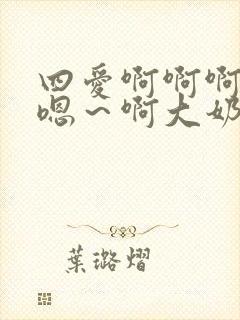 四爱啊啊啊
嗯～啊大奶
叶璐熠